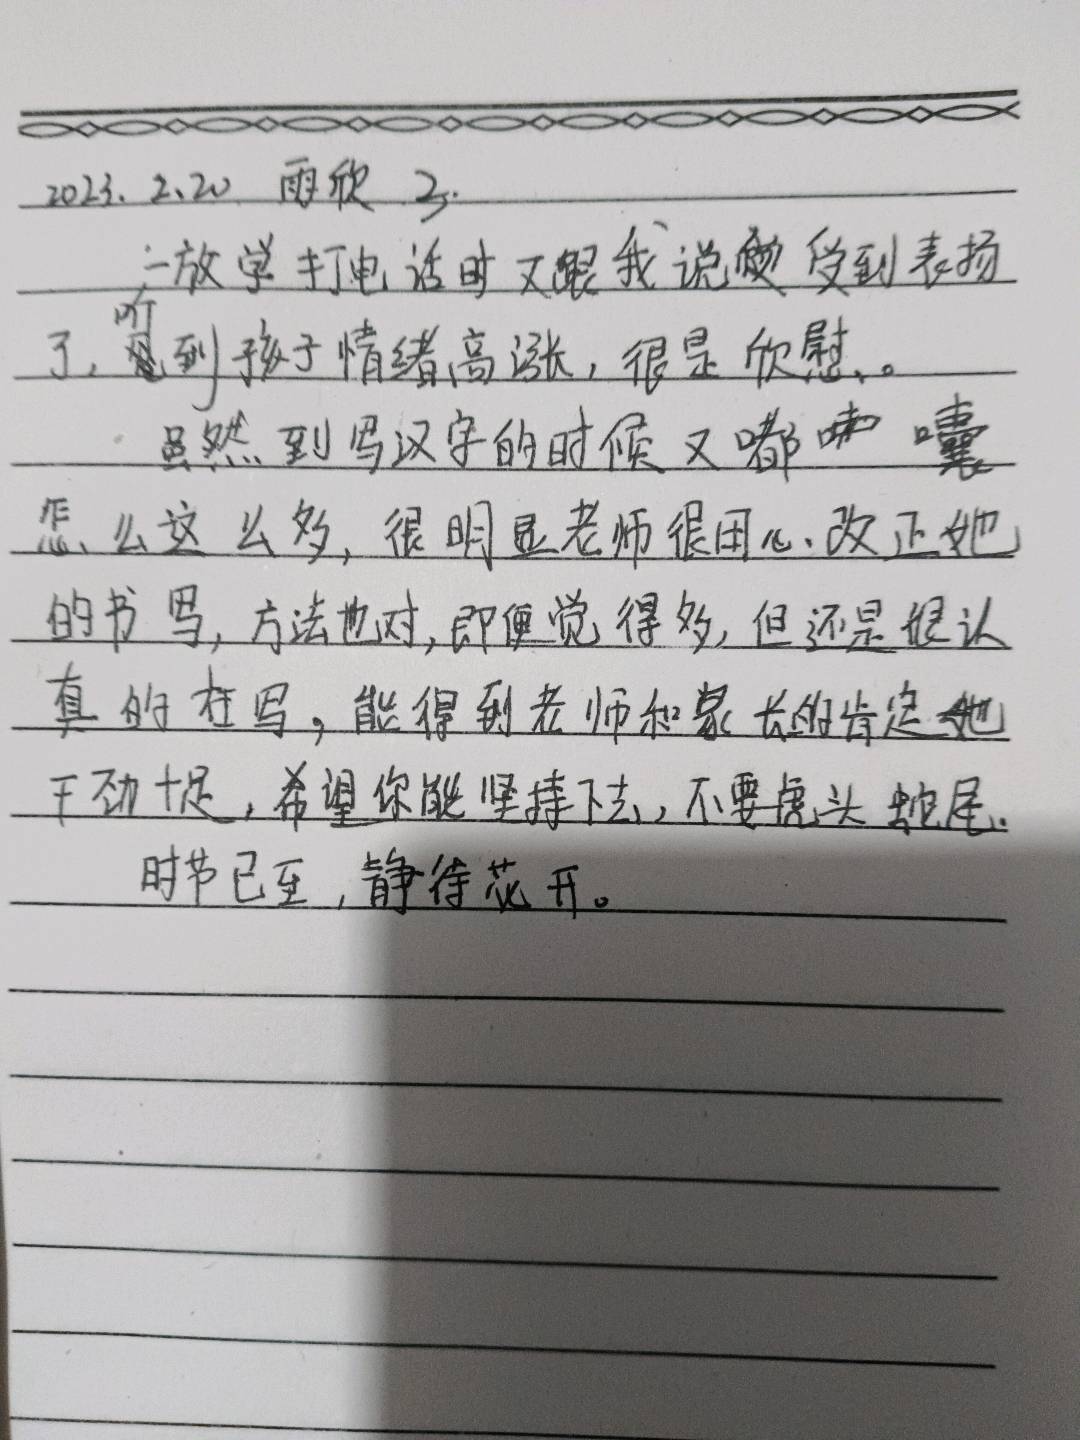 2023.2.20 雨欣 3.
一放学打电话时又跟我说受到表扬
了,听到孩子情绪高涨,很是欣慰。
虽然到写汉字的时候又嘟囔
怎么这么多,很明显老师很用心改正她
的书写,方法也对,即便觉得多,但还是很认
真的在写,能得到老师和家长的肯定她
干劲十足,希望你能坚持下去,不要虎头蛇尾.
时节已至,静待花开。